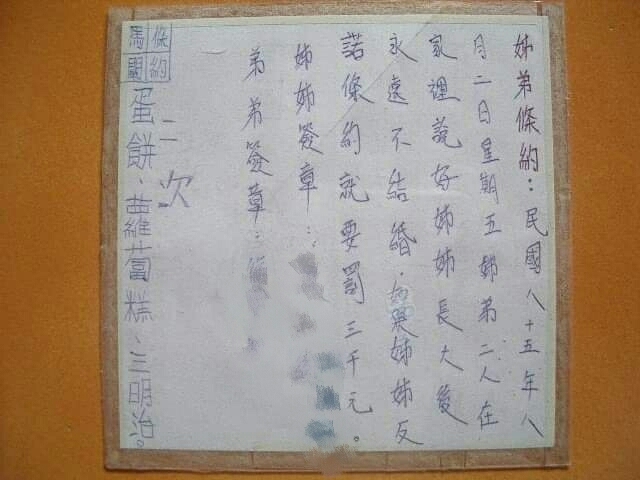 姊弟條約：民國八十五年八
月二日星期五姊弟二人在
家裡說好姊姊長大後
永遠不結婚．如果姊姊反
諾條約就要罰三千元。
姊姊簽章：
弟弟簽章：
二次
條約
馬關
蛋餅、蘿蔔糕、三明治。